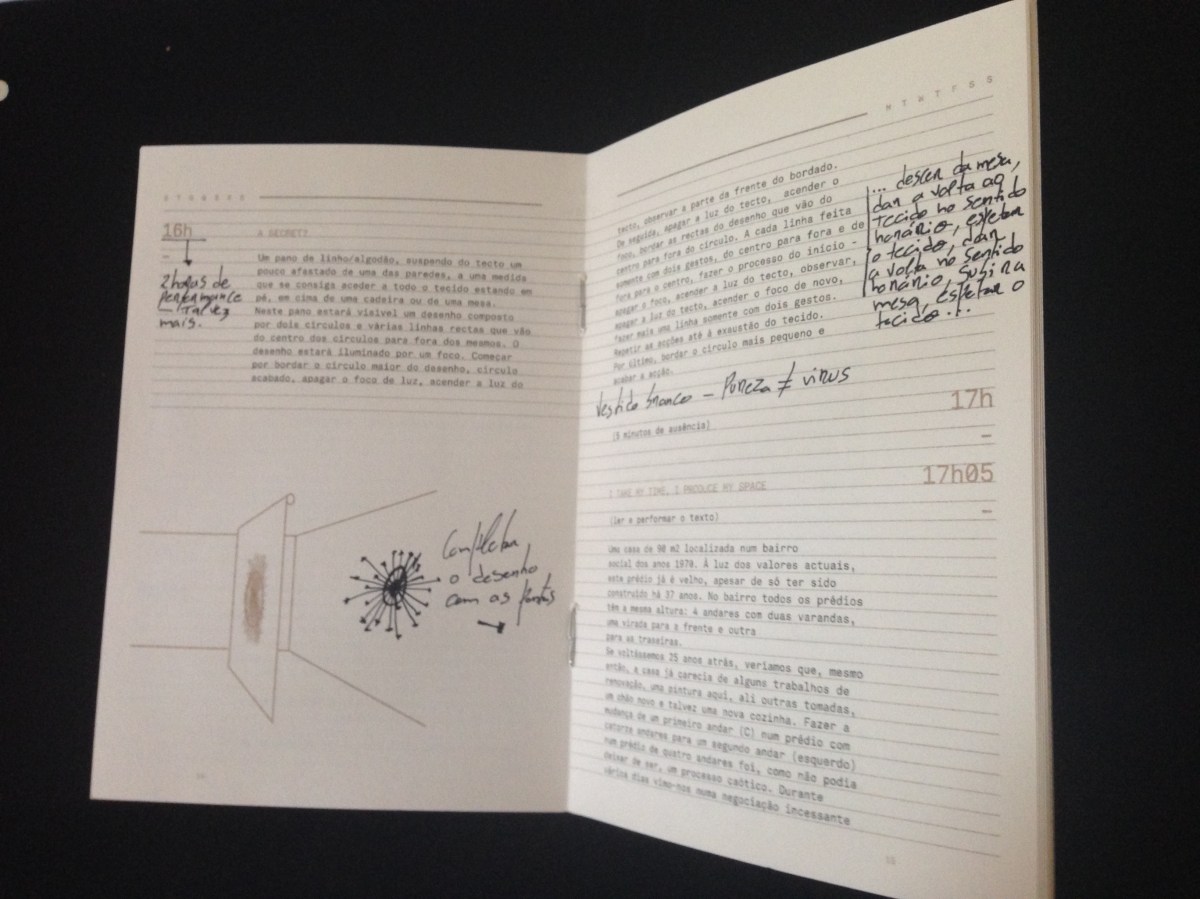 16h
–
2 horas de
performance
– talvez
mais.
A SECRET?
Um pano de linho/algodão, suspenso do tecto um
pouco afastado de uma das paredes, a uma medida
que se consiga aceder a todo o tecido estando em
pé, em cima de uma cadeira ou de uma mesa.
Neste pano estará visível um desenho composto
por dois círculos e várias linhas rectas que vão
do centro dos círculos para fora dos mesmos. O
desenho estará iluminado por um foco. Começar
por bordar o círculo maior do desenho, círculo
acabado, apagar o foco de luz, acender a luz do
Completar
o desenho
com as
M T W T F S S
tecto, observar a parte da frente do bordado.
De seguida, apagar a luz do tecto, acender o
foco, bordar as rectas do desenho que vão do
centro para fora do círculo. A cada linha feita
somente com dois gestos, do centro para fora e de
fora para o centro, fazer o processo do início -
apagar o foco, acender a luz do tecto, observar,
apagar a luz do tecto, acender o foco de novo,
fazer mais uma linha somente com dois gestos.
Repetir as acções até à exaustão do tecido.
Por último, bordar o círculo mais pequeno e
acabar a acção.
... descer da mesa,
dar a volta ao
tecido no sentido
horário, espetar
o tecido, dar
a volta no sentido
horário, subir a
mesa, espetar o
tecido...
Vestido branco – Pureza ≠ vírus
17h
(5 minutos de ausência)
–
17h05
I TAKE MY TIME, I PRODUCE MY SPACE
–
(ler e performar o texto)
Uma casa de 90 m2 localizada num bairro
social dos anos 1970. À luz dos valores actuais,
este prédio já é velho, apesar de só ter sido
construído há 37 anos. No bairro todos os prédios
têm a mesma altura: 4 andares com duas varandas,
uma virada para a frente e outra
para as traseiras.
Se voltássemos 25 anos atrás, veríamos que, mesmo
então, a casa já carecia de alguns trabalhos de
renovação, uma pintura aqui, ali outras tomadas,
um chão novo e talvez uma nova cozinha. Fazer a
mudança de um primeiro andar (C) num prédio com
catorze andares para um segundo andar (esquerdo)
num prédio de quatro andares foi, como não podia
deixar de ser, um processo caótico. Durante
vários dias vimo-nos numa negociação incessante